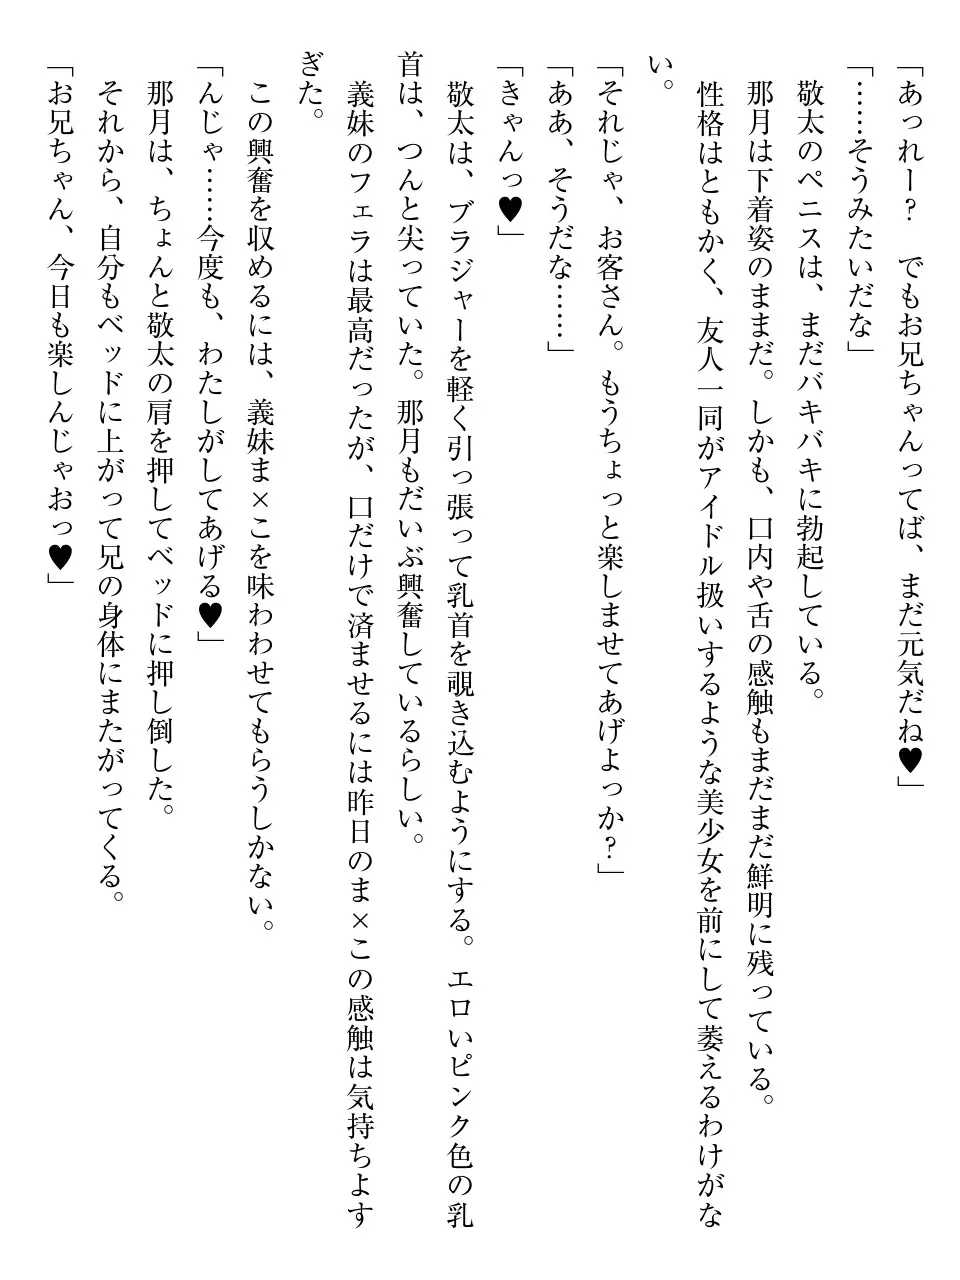 「あっれー？　でもお兄ちゃんってば、まだ元気だね♥」
「……そうみたいだな」
敬太のペニスは、まだバキバキに勃起している。
那月は下着姿のままだ。しかも、口内や舌の感触もまだまだ鮮明に残っている。
性格はともかく、友人一同がアイドル扱いするような美少女を前にして萎えるわけがな
い。
「それじゃ、お客さん。もうちょっと楽しませてあげよっか？」
「ああ、そうだな……」
「きゃんっ♥」
敬太は、ブラジャーを軽く引っ張って乳首を覗き込むようにする。エロいピンク色の乳
首は、つんと尖っていた。那月もだいぶ興奮しているらしい。
義妹のフェラは最高だったが、口だけで済ませるには昨日のま×この感触は気持ちよす
ぎた。
この興奮を収めるには、義妹ま×こを味わわせてもらうしかない。
「んじゃ……今度も、わたしがしてあげる♥」
那月は、ちょんと敬太の肩を押してベッドに押し倒した。
それから、自分もベッドに上がって兄の身体にまたがってくる。
「お兄ちゃん、今日も楽しんじゃおっ♥」